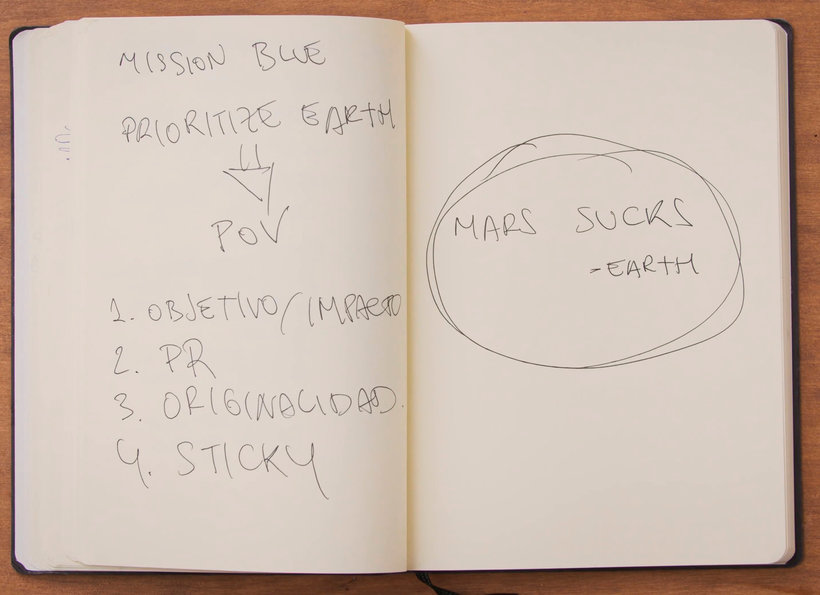 MISSION BLUE
PRIORITIZE EARTH
POV
1. OBJETIVO/IMPACTO
2. PR
3. ORIGINALIDAD.
4. STICKY
MARS SUCKS
-EARTH